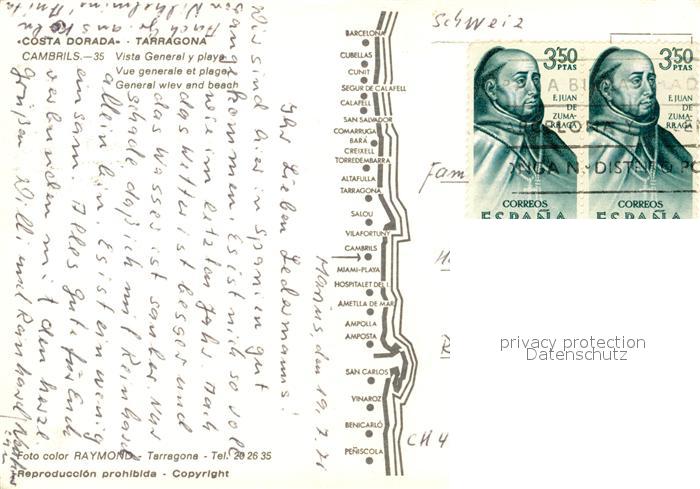 «COSTA DORADA» - TARRAGONA
CAMBRILS.—35 Vista General y playa
Vue generale et plage
General wiev and beach
den 19.7.71
Ihr Lieben Ledermanns!
Wir sind hier in Spanien gut
angekommen. Es ist nich so voll
wie im letzten Jahr. Auch
das Wetter ist besser und
das Wasser ist sauber. Nur
schade daß ich mit Reinhard
allein bin. Es ist ein wenig
einsam. Alles gute für Euch
verbunden mit den herzl.
Grüßen Willi und Reinhard
Foto color RAYMOND - Tarragona - Tel. 20 26 35
Reproducción prohibida - Copyright
BARCELONA
CUBELLAS
CUNIT
SEGUR DE CALAFELL
CALAFELL
SAN SALVADOR
COMARRUGA
BARÁ
CREIXELL
TORREDEMBARRA
ALTAFULLA
TARRAGONA
SALOU
VILAFORTUNY
CAMBRILS
MIAMI-PLAYA
HOSPITALET DEL I.
AMETLLA DE MAR
AMPOLLA
AMPOSTA
SAN CARLOS
VINAROZ
BENICARLÓ
PEÑISCOLA
Schweiz
Fam
CH 4
3'50
PTAS
F. JUAN
DE
ZUMA-
RRAGA
CORREOS
ESPAÑA
3'50
PTAS
F. JUAN
DE
ZUMA-
RRAGA
CORREOS
ESPAÑA
privacy protection
Datenschutz